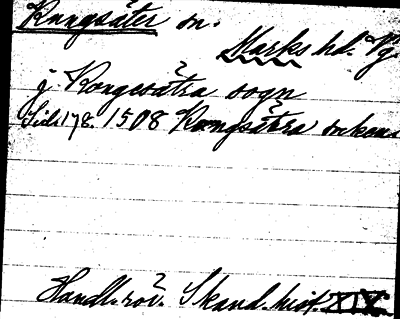 Kungsäter sn.
Marks hd. Vg.
j Kongesätra sogn
Sid. 178. 1508 Kongsätra sokens
Handl. rör. Skand. hist. XIX.